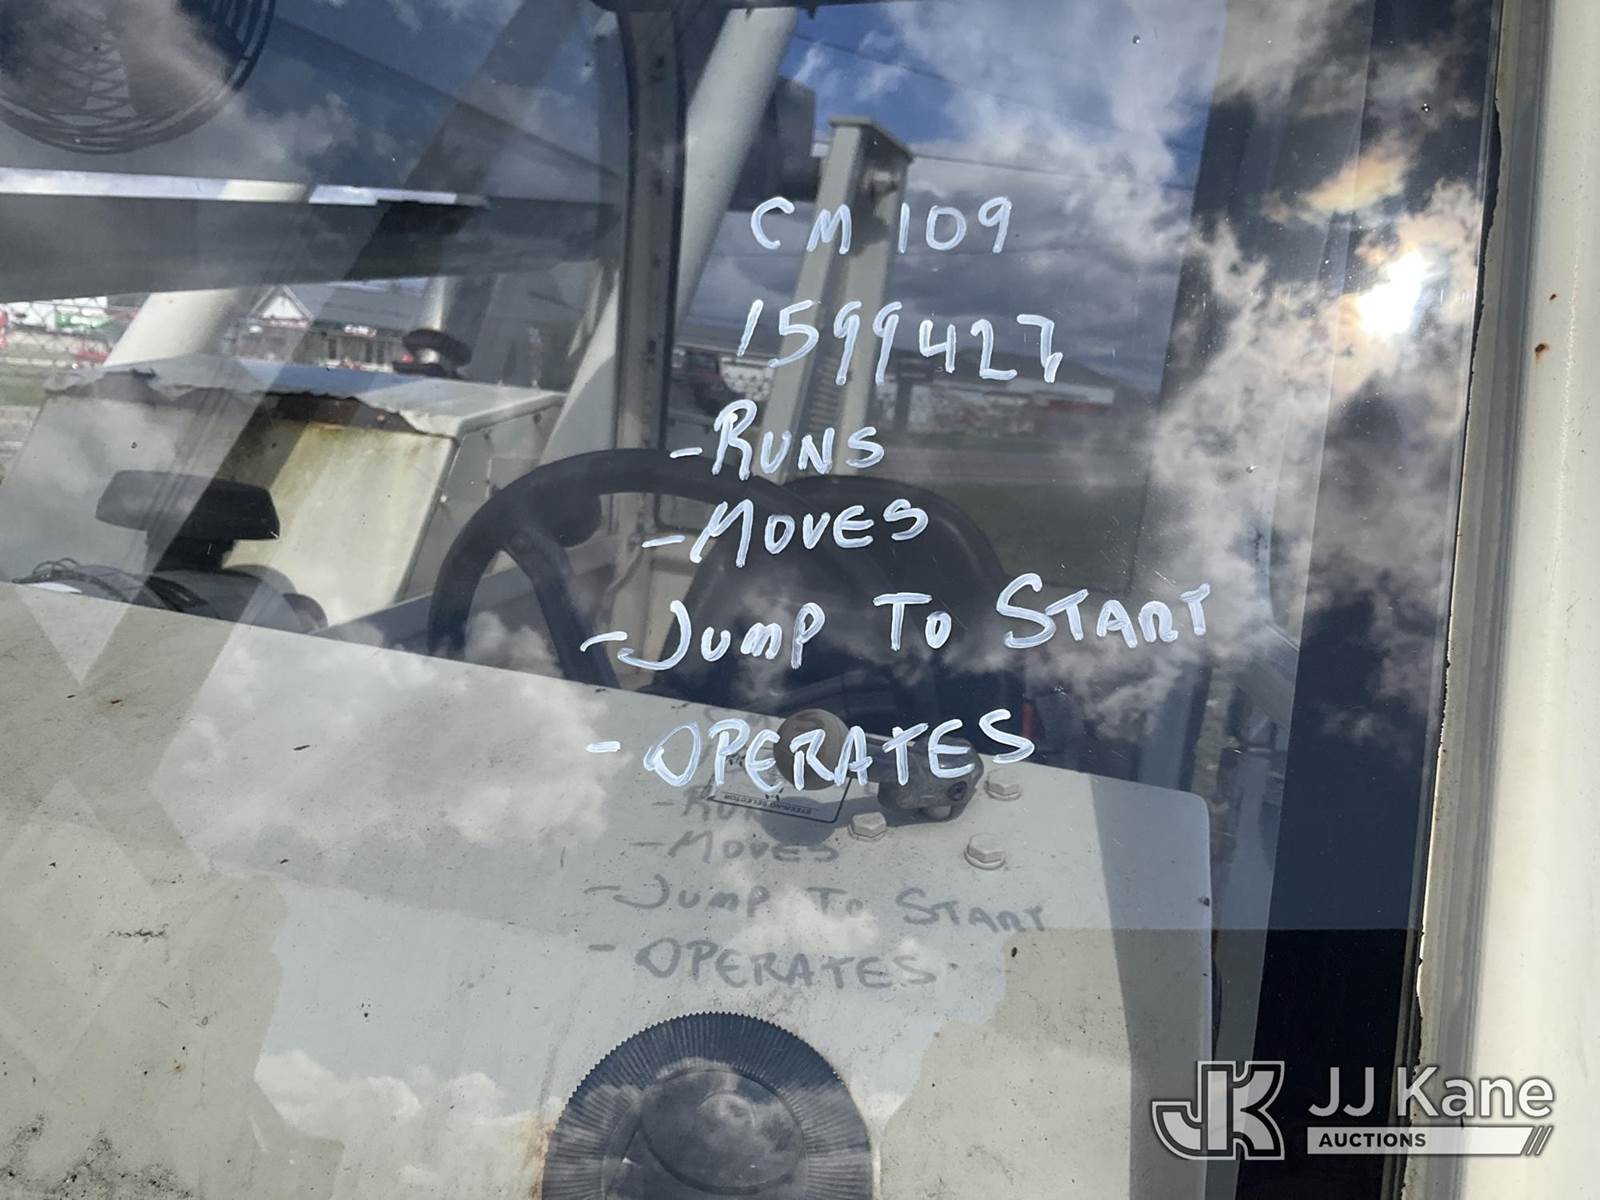 CM 109
1599427
-RUNS
-MOVES
-JUMP TO START
-OPERATES
STEERING SELECTOR
- RUN
- MOVES
- JUMP TO START
- OPERATES
JK JJ Kane
AUCTIONS